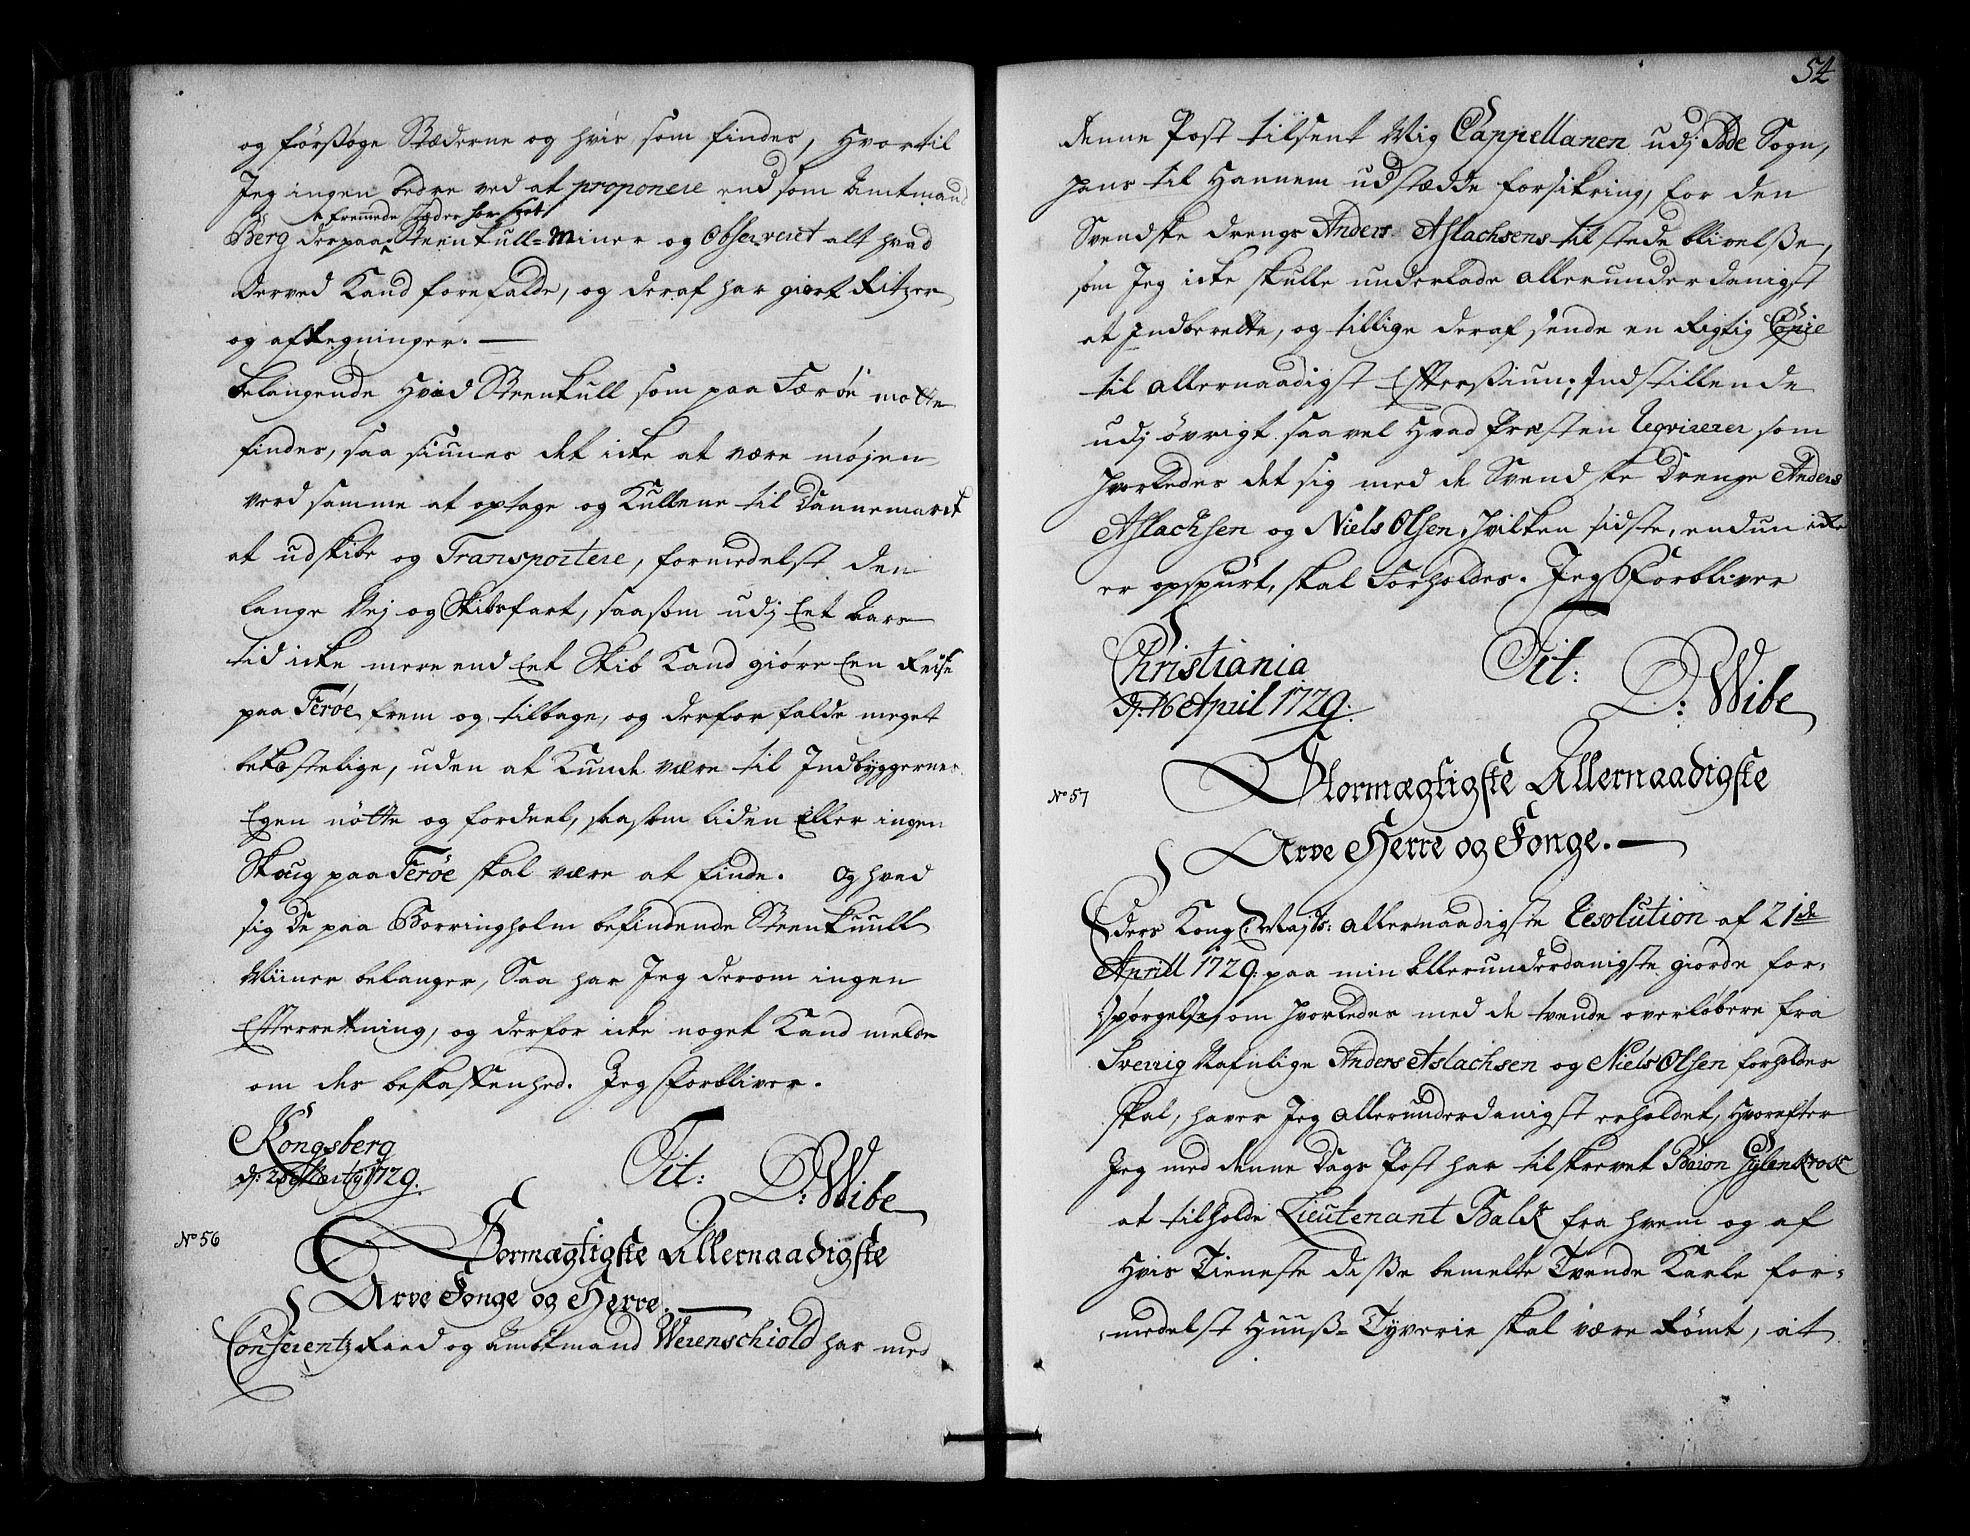 og forsøge Stæderne og hvis som findes, hvortil
Jeg ingen bedre ved at proponere end som Amtmand
fremmede Stæder har seet
Berg derpaa Steenkull-Miner og Observeret alt hvad
derved kand forefalde, og deraf har giort Ritzer
og aftegninger. —
Belangende hvad Steenkull som paa Færøe motte
findes, saa siunes det icke at være møjen
verd samme at optage og Kullene til Dannemarck
at udskibe og Transportere, formedelst den
lange Vej og Skibsfart, saasom udj Eet Aars
tid icke mere end Eet Skib kand giøre Een Reise
paa Ferøe frem og tilbage, og derfor falde meget
bekostelige, uden at kunde være til Indbyggernes
Egen nøtte og fordeel, saasom liden Eller ingen
Skoug paa Ferøe skal være at finde. Og hvad
sig de paa Borringholm befindende Steenkuull
Miiner belanger, Saa har Jeg derom ingen
Efterretning, og derfor icke noget kand melde
om des beskaffenhed. Jeg forbliver.
Kongsberg
d: Marty 1729. Tit: D: Wibe
No 56
Stormægtigste Allernaadigste
Arve Konge og Herre. —
Conferentz Raad og Amtmand Werenschiold har med
54
denne Post tilsent Mig Cappellanen udj Sogn,
hans til Hannem udstædde forsikring, for den
Svendske drengs Anders Aslachsens tilstede blivelße,
som Jeg icke skulle underlade allerunderdanigst
at Indberette, og tillige deraf sende en Rigtig Copie
til allernaadigst Eftersiun; Indstillende
udj øvrigt saavel hvad Præsten reqvirerer som
hvorledes det sig med de Svendske Drenge Anders
Aslachsen og Niels Olsen, hvilken sidste, endnu icke
er opspurt, skal forholdes. Jeg forbliver
Christiania
d: 16 April 1729. Tit: D: Wibe
No 57
Stormægtigste Allernaadigste
Arve Herre og Konge. —
Eders Kongl: Majts: allernaadigste Resolution af 21de
Aprill 1729. paa min Allerunderdanigste giorde for-
spørgelse, om hvorledes med de tvende overløbere fra
Sverrig Nafnlige Anders Aslachsen og Niels Olsen forholdes
skal, haver Jeg allerunderdanigst erholdet, hvorefter
Jeg med denne Dags Post har tilskrevet Baron Gyldenkrok
at tilholde Lieutenant Balck fra hvem og af
Hvis Tieneste disse bemelte Tvende Karle for-
medelst Huuß-Tyverie skal være Rømt, at